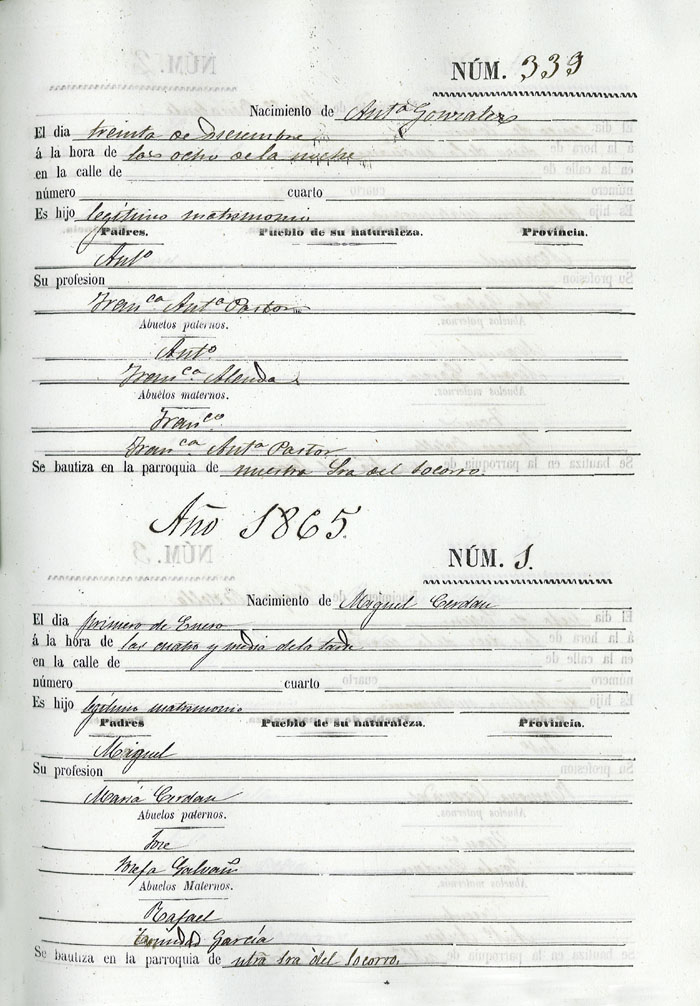 NÚM. 339
Nacimiento de Antª Gonzalez
El dia treinta de Diciembre
á la hora de las ocho de la noche
en la calle de
número cuarto
Es hijo legítimo matrimonio
Padres. Pueblo de su naturaleza. Provincia.
Antº
Su profesion
Franca Antª Pastor
Abuelos paternos.
Antº
Franca Alenda
Abuelos maternos.
Franco
Franca Antª Pastor
Se bautiza en la parroquia de nuestra Sra del Socorro.
Año 1865.
NÚM. 1.
Nacimiento de Miguel Cerdan
El dia primero de Enero
á la hora de las cuatro y media de la tarde
en la calle de
número cuarto
Es hijo legítimo matrimonio
Padres Pueblo de su naturaleza. Provincia.
Miguel
Su profesion
María Cerdan
Abuelos paternos.
Jose
Josefa Galvañ
Abuelos Maternos.
Rafael
García
Se bautiza en la parroquia de ntra Sra del Socorro.